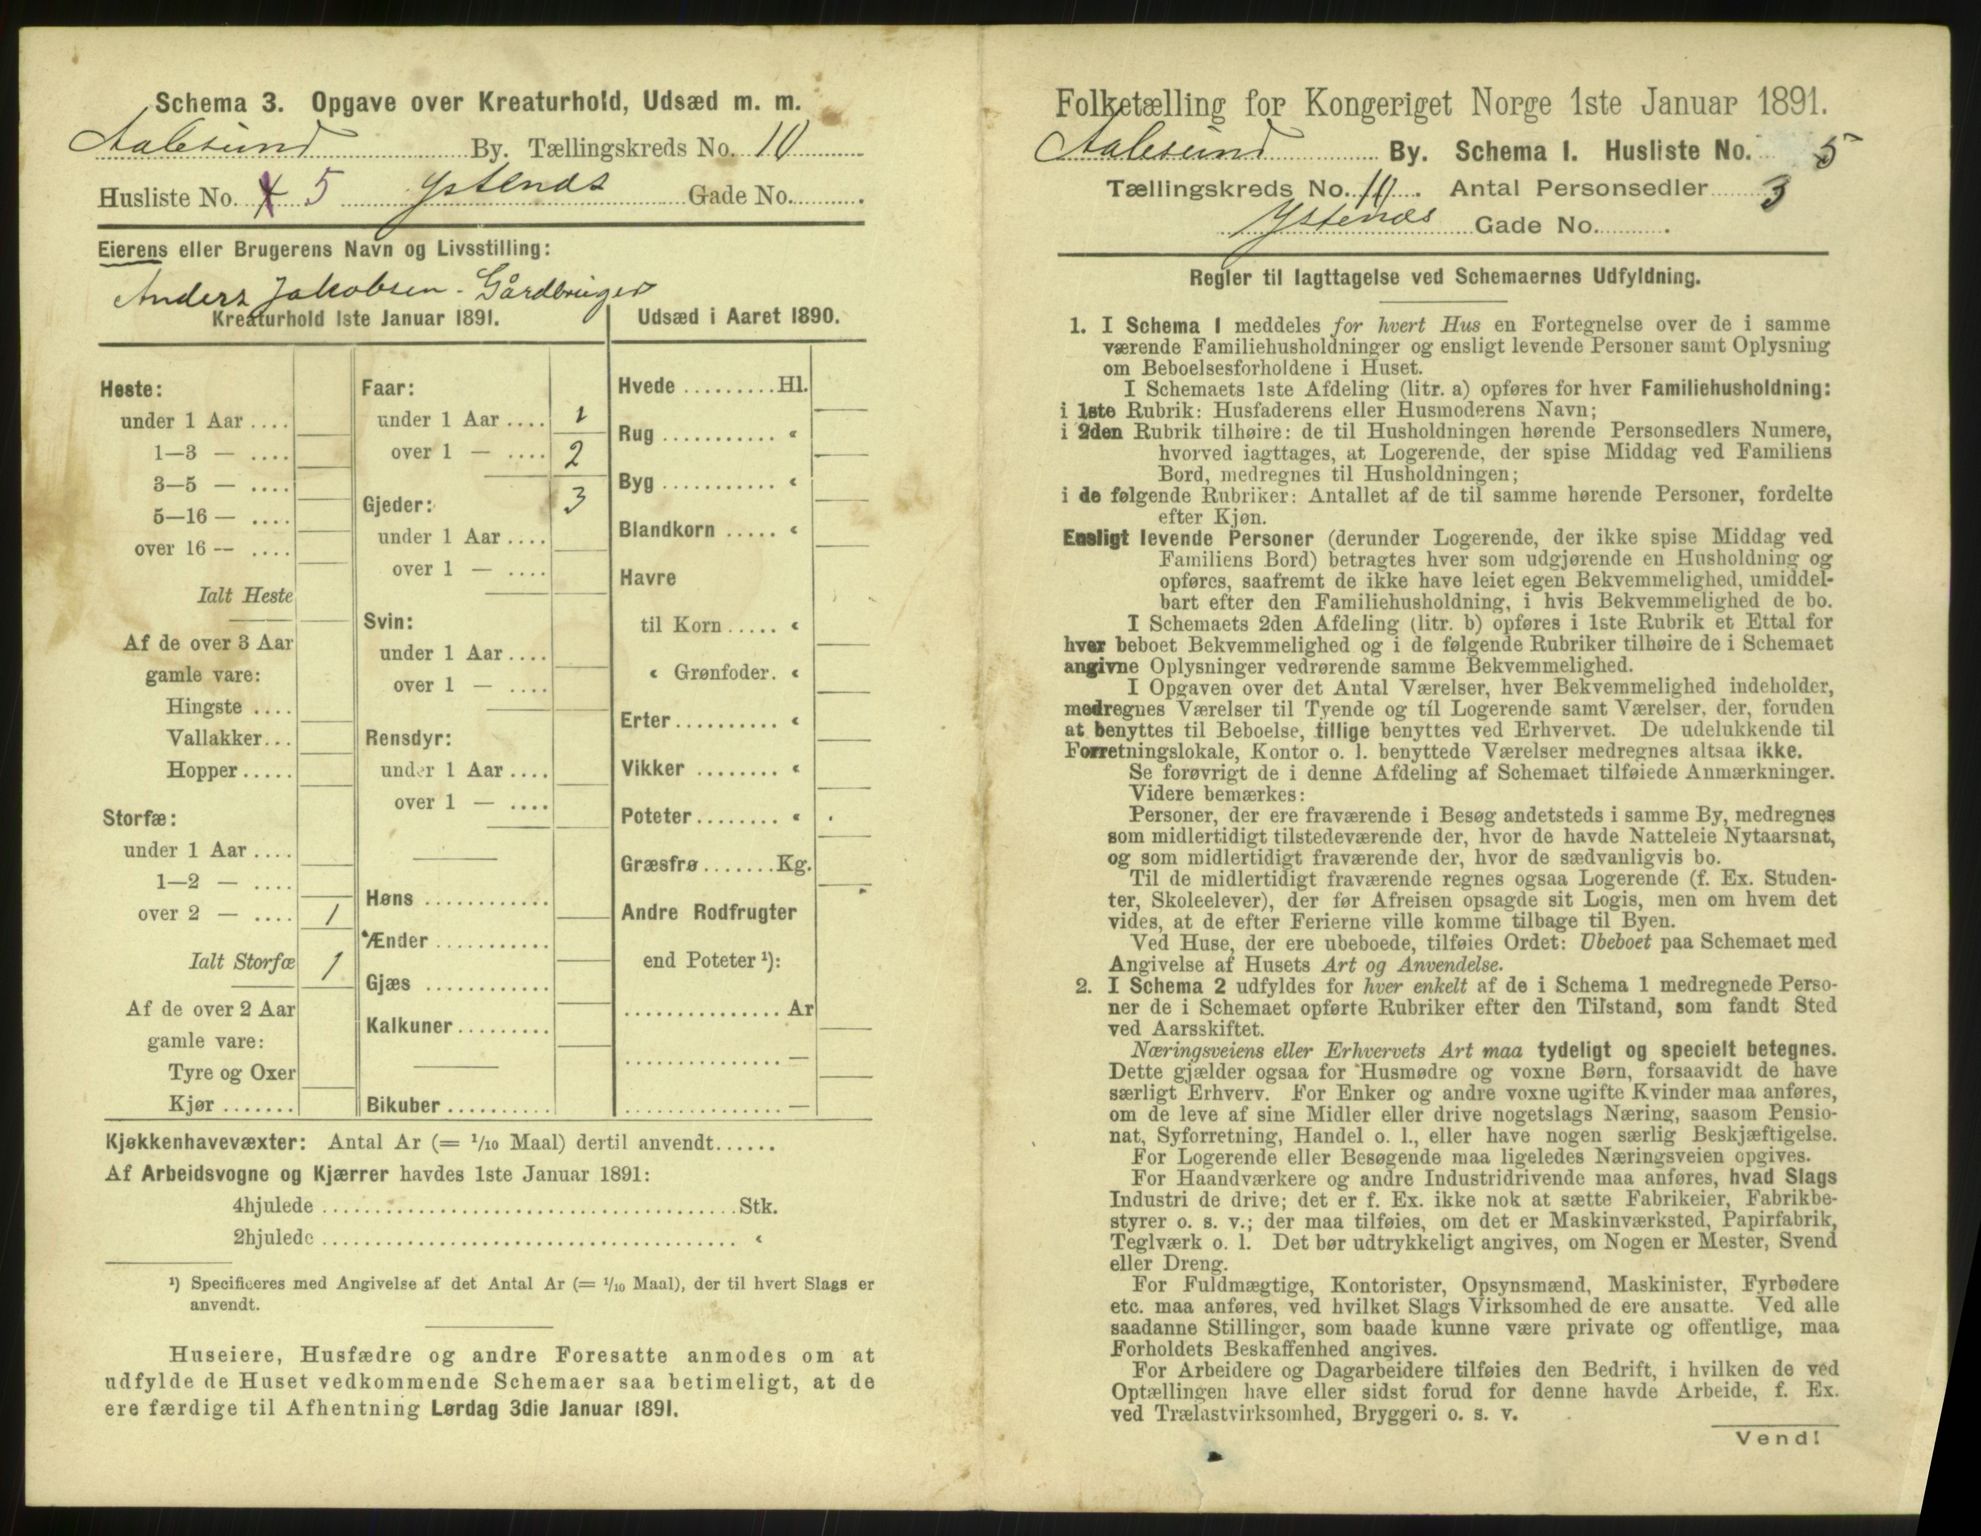 Schema 3. Opgave over Kreaturhold, Udsæd m. m.
Aalesund By. Tællingskreds No. 10
Husliste No. 4 5 Ystenæs Gade No.
Eierens eller Brugerens Navn og Livsstilling:
Anders Jakobsen - Gårdbruger
Kreaturhold 1ste Januar 1891.
Heste:
under 1 Aar ....
1—3 — ....
3—5 — ....
5—16 — ....
over 16 — ....
Ialt Heste
Af de over 3 Aar
gamle vare:
Hingste ....
Vallakker...
Hopper.....
Storfæ:
under 1 Aar ....
1—2 — ....
over 2 — .... 1
Ialt Storfæ 1
Af de over 2 Aar
gamle vare:
Tyre og Oxer
Kjør .......
Faar:
under 1 Aar .... 1
over 1 — .... 2
Gjeder: 3
under 1 Aar ....
over 1 — ....
Svin:
under 1 Aar ....
over 1 — ....
Rensdyr:
under 1 Aar ....
over 1 — ....
Høns ............
Ænder ...........
Gjæs ............
Kalkuner.........
Bikuber ..........
Udsæd i Aaret 1890.
Hvede .........Hl.
Rug ........... “
Byg ........... “
Blandkorn ..... “
Havre
til Korn ..... “
“ Grønfoder. “
Erter.......... “
Vikker ........ “
Poteter........ “
Græsfrø.......Kg.
Andre Rodfrugter
end Poteter ¹):
............... Ar
............... —
............... —
Kjøkkenhavevæxter: Antal Ar (= 1/10 Maal) dertil anvendt......
Af Arbeidsvogne og Kjærrer havdes 1ste Januar 1891:
4hjulede .......................................Stk.
2hjulede ....................................... “
¹) Specificeres med Angivelse af det Antal Ar (= 1/10 Maal), der til hvert Slags er
anvendt.
Huseiere, Husfædre og andre Foresatte anmodes om at
udfylde de Huset vedkommende Schemaer saa betimeligt, at de
ere færdige til Afhentning Lørdag 3die Januar 1891.
Folketælling for Kongeriget Norge 1ste Januar 1891.
Aalesund By. Schema I. Husliste No. 5
Tællingskreds No. 10. Antal Personsedler 3
Ystenæs Gade No. .
Regler til Iagttagelse ved Schemaernes Udfyldning.
1. I Schema 1 meddeles for hvert Hus en Fortegnelse over de i samme
værende Familiehusholdninger og ensligt levende Personer samt Oplysning
om Beboelsesforholdene i Huset.
I Schemaets 1ste Afdeling (litr. a) opføres for hver Familiehusholdning:
i 1ste Rubrik: Husfaderens eller Husmoderens Navn;
i 2den Rubrik tilhøire: de til Husholdningen hørende Personsedlers Numere,
hvorved iagttages, at Logerende, der spise Middag ved Familiens
Bord, medregnes til Husholdningen;
i de følgende Rubriker: Antallet af de til samme hørende Personer, fordelte
efter Kjøn.
Ensligt levende Personer (derunder Logerende, der ikke spise Middag ved
Familiens Bord) betragtes hver som udgjørende en Husholdning og
opføres, saafremt de ikke have leiet egen Bekvemmelighed, umiddel-
bart efter den Familiehusholdning, i hvis Bekvemmelighed de bo.
I Schemaets 2den Afdeling (litr. b) opføres i 1ste Rubrik et Ettal for
hver beboet Bekvemmelighed og i de følgende Rubriker tilhøire de i Schemaet
angivne Oplysninger vedrørende samme Bekvemmelighed.
I Opgaven over det Antal Værelser, hver Bekvemmelighed indeholder,
medregnes Værelser til Tyende og til Logerende samt Værelser, der, foruden
at benyttes til Beboelse, tillige benyttes ved Erhvervet. De udelukkende til
Forretningslokale, Kontor o. l. benyttede Værelser medregnes altsaa ikke.
Se forøvrigt de i denne Afdeling af Schemaet tilføiede Anmærkninger.
Videre bemærkes:
Personer, der ere fraværende i Besøg andetsteds i samme By, medregnes
som midlertidigt tilstedeværende der, hvor de havde Natteleie Nytaarsnat,
og som midlertidigt fraværende der, hvor de sædvanligvis bo.
Til de midlertidigt fraværende regnes ogsaa Logerende (f. Ex. Studen-
ter, Skoleelever), der før Afreisen opsagde sit Logis, men om hvem det
vides, at de efter Ferierne ville komme tilbage til Byen.
Ved Huse, der ere ubeboede, tilføies Ordet: Ubeboet paa Schemaet med
Angivelse af Husets Art og Anvendelse.
2. I Schema 2 udfyldes for hver enkelt af de i Schema 1 medregnede Perso-
ner de i Schemaet opførte Rubriker efter den Tilstand, som fandt Sted
ved Aarsskiftet.
Næringsveiens eller Erhvervets Art maa tydeligt og specielt betegnes.
Dette gjælder ogsaa for Husmødre og voxne Børn, forsaavidt de have
særligt Erhverv. For Enker og andre voxne ugifte Kvinder maa anføres,
om de leve af sine Midler eller drive nogetslags Næring, saasom Pensio-
nat, Syforretning, Handel o. l., eller have nogen særlig Beskjæftigelse.
For Logerende eller Besøgende maa ligeledes Næringsveien opgives.
For Haandværkere og andre Industridrivende maa anføres, hvad Slags
Industri de drive; det er f. Ex. ikke nok at sætte Fabrikeier, Fabrikbe-
styrer o. s. v.; der maa tilføies, om det er Maskinværksted, Papirfabrik,
Teglværk o. l. Det bør udtrykkeligt angives, om Nogen er Mester, Svend
eller Dreng.
For Fuldmægtige, Kontorister, Opsynsmænd, Maskinister, Fyrbødere
etc. maa anføres, ved hvilket Slags Virksomhed de ere ansatte. Ved alle
saadanne Stillinger, som baade kunne være private og offentlige, maa
Forholdets Beskaffenhed angives.
For Arbeidere og Dagarbeidere tilføies den Bedrift, i hvilken de ved
Optællingen have eller sidst forud for denne havde Arbeide, f. Ex.
ved Trælastvirksomhed, Bryggeri o. s. v.
Vend!